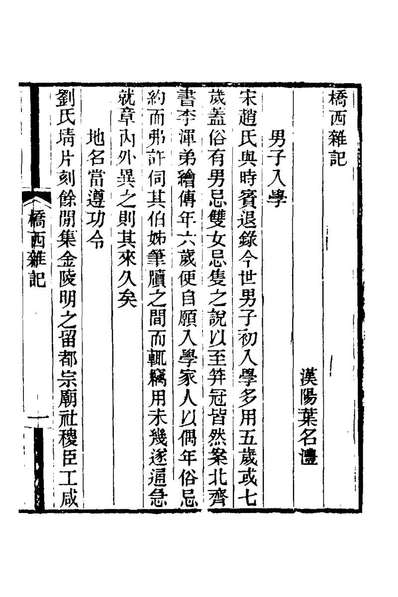 橋西雜記
漢陽葉名澧
男子入學
宋趙氏與時賓退錄今世男子初入學多用五歲或七
歲蓋俗有男忌雙女忌隻之說以至笄冠皆然案北齊
書李渾弟繪傳年六歲便自願入學家人以偶年俗忌
約而弗許伺其伯姊筆牘之間而輒竊用未幾遂通急
就章內外異之則其來久矣
地名當遵功令
劉氏堉片刻餘閒集金陵明之留都宗廟社稷臣工咸
橋西雜記
一